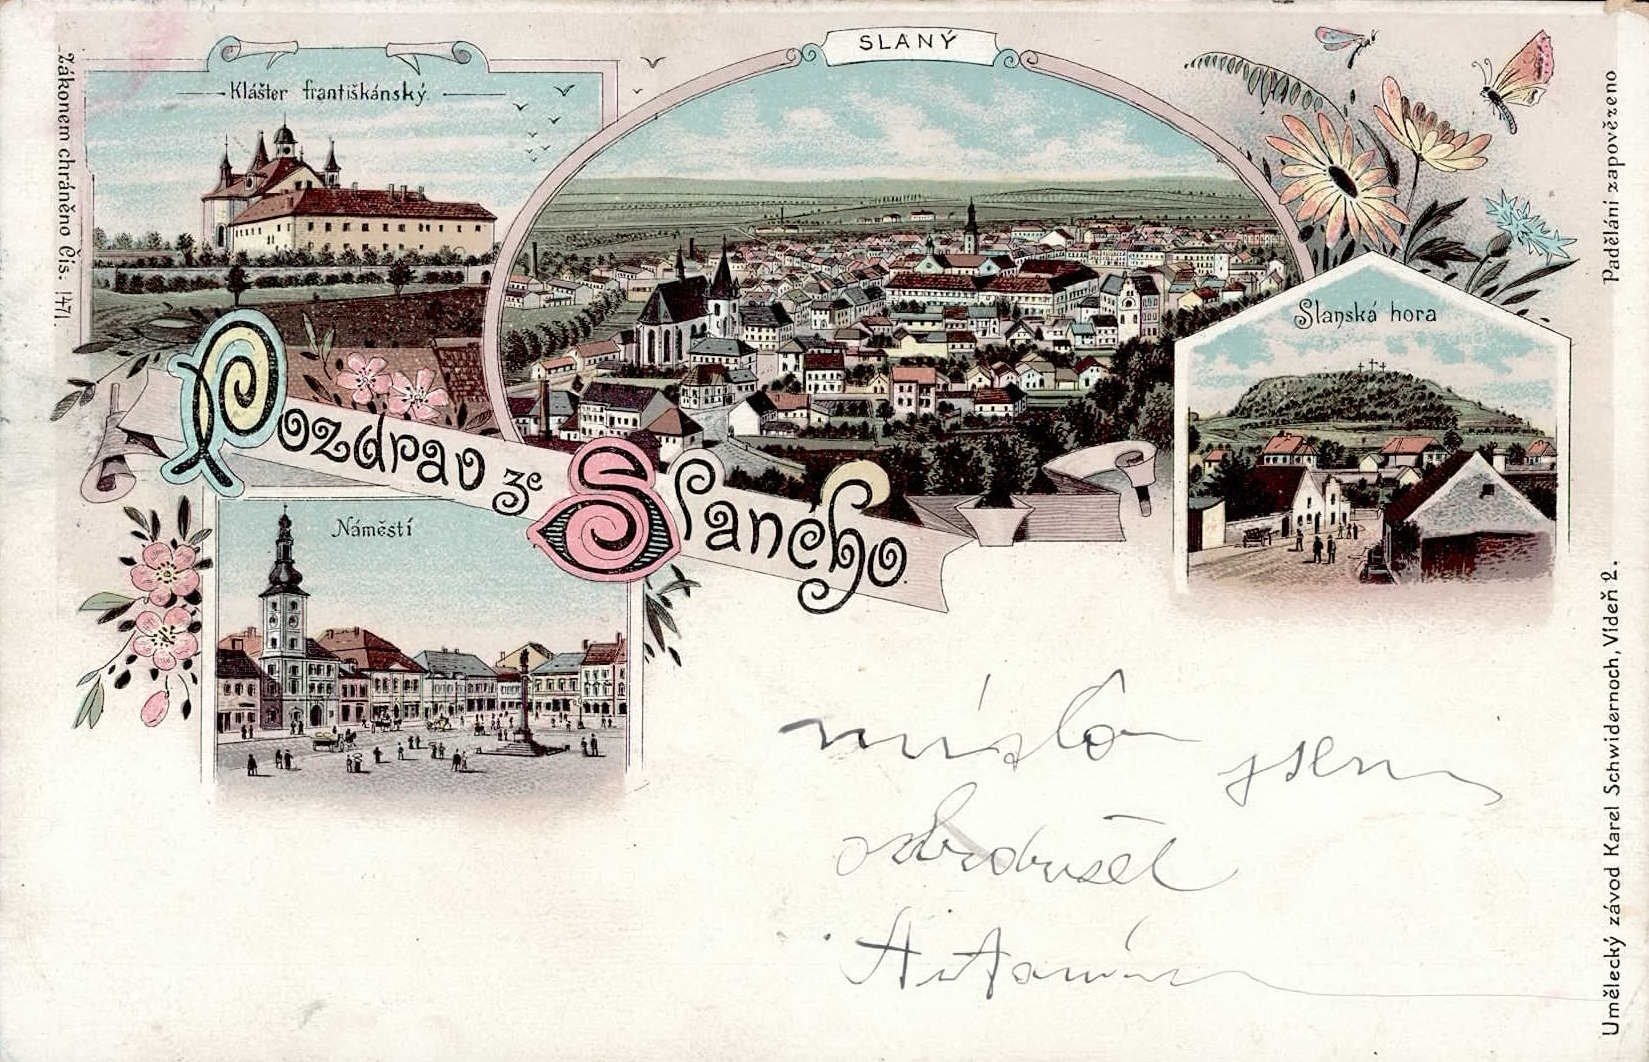 SLANÝ
Klášter františkánský.
Slanská hora
Pozdrav ze Slaného.
Náměstí
Zákonem chráněno Čís. 1471.
Padělání zapovězeno
Umělecký závod Karel Schwidernoch, Vídeň 2.
místo jsem